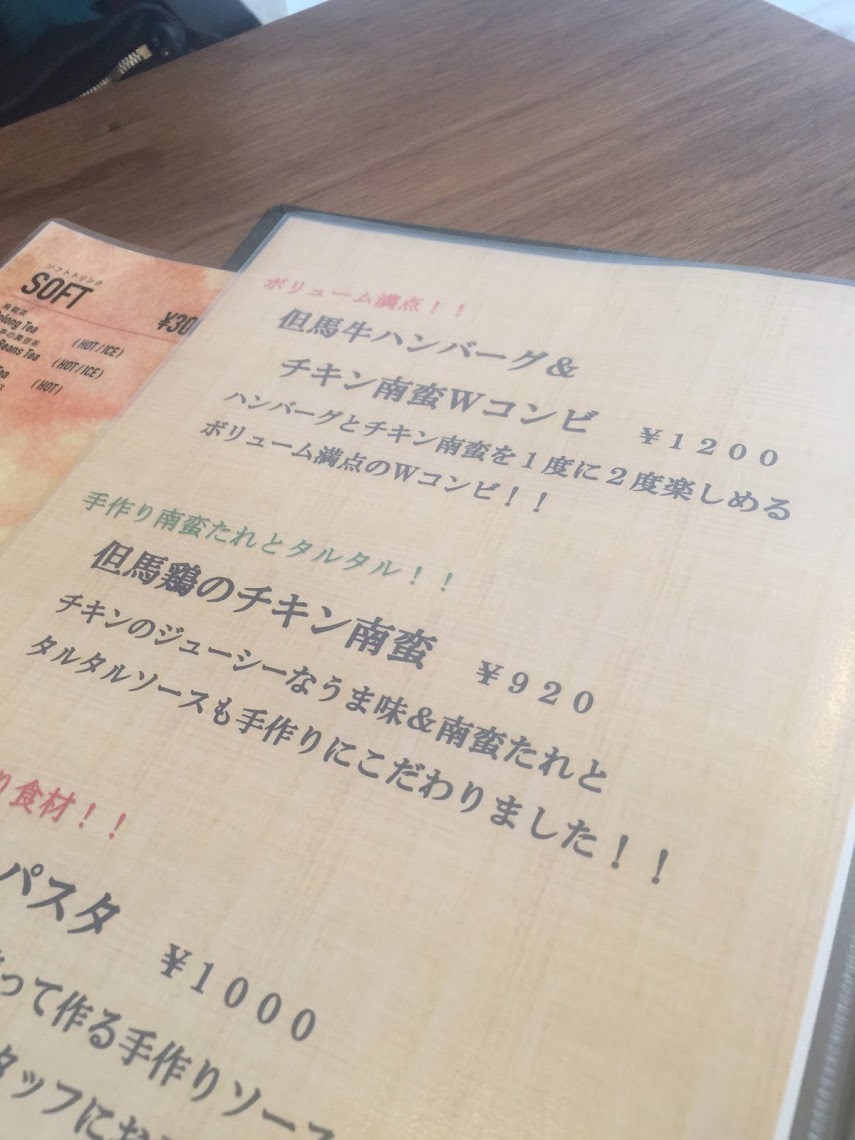 ソフトドリンク
SOFT
¥30
烏龍茶
olong Tea (HOT/ICE)
Beans Tea (HOT/ICE)
Tea (HOT)
ボリューム満点！！
但馬牛ハンバーグ＆
チキン南蛮Wコンビ ￥１２００
ハンバーグとチキン南蛮を１度に２度楽しめる
ボリューム満点のWコンビ！！
手作り南蛮たれとタルタル！！
但馬鶏のチキン南蛮 ￥９２０
チキンのジューシーなうま味＆南蛮たれと
タルタルソースも手作りにこだわりました！！
り食材！！
パスタ ￥１０００
って作る手作りソース
タッフにお